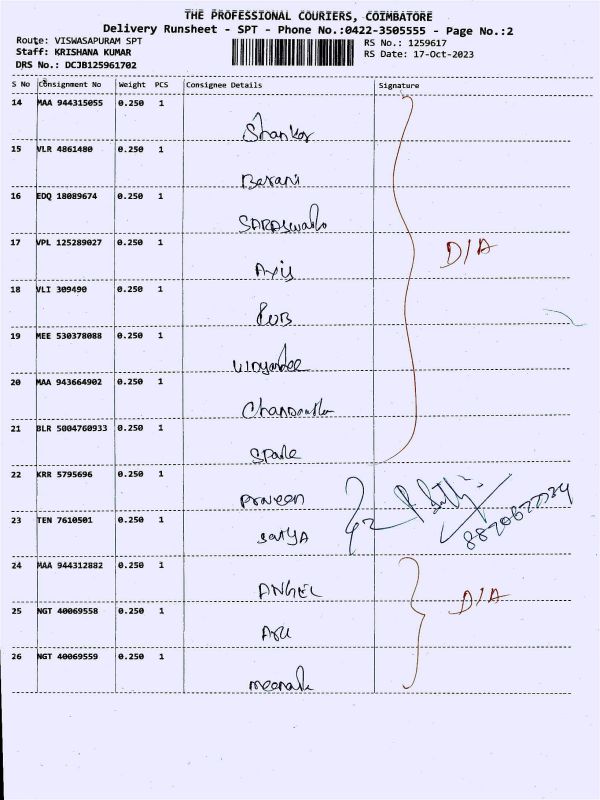 THE PROFESSIONAL COURIERS, COIMBATORE
Delivery Runsheet - SPT - Phone No.:0422-3505555 - Page No.:2
Route: VISWASAPURAM SPT
RS No.: 1259617
Staff: KRISHANA KUMAR
RS Date: 17-Oct-2023
DRS No.: DCJB125961702
S No Consignment No Weight PCS Consignee Details Signature
14 MAA 944315055 0.250 1
Shankar
15 VLR 4861480 0.250 1
Barani
16 EDQ 18089674 0.250 1
17 VPL 125289027 0.250 1
D/A
Axis
18 VLI 309490 0.250 1
19 MEE 530378088 0.250 1
20 MAA 943664902 0.250 1
21 BLR 5004760933 0.250 1
22 KRR 5795696 0.250 1
Praveen
23 TEN 7610501 0.250 1
SatYA
24 MAA 944312882 0.250 1
ANGEL
D/A
25 NGT 40069558 0.250 1
26 NGT 40069559 0.250 1